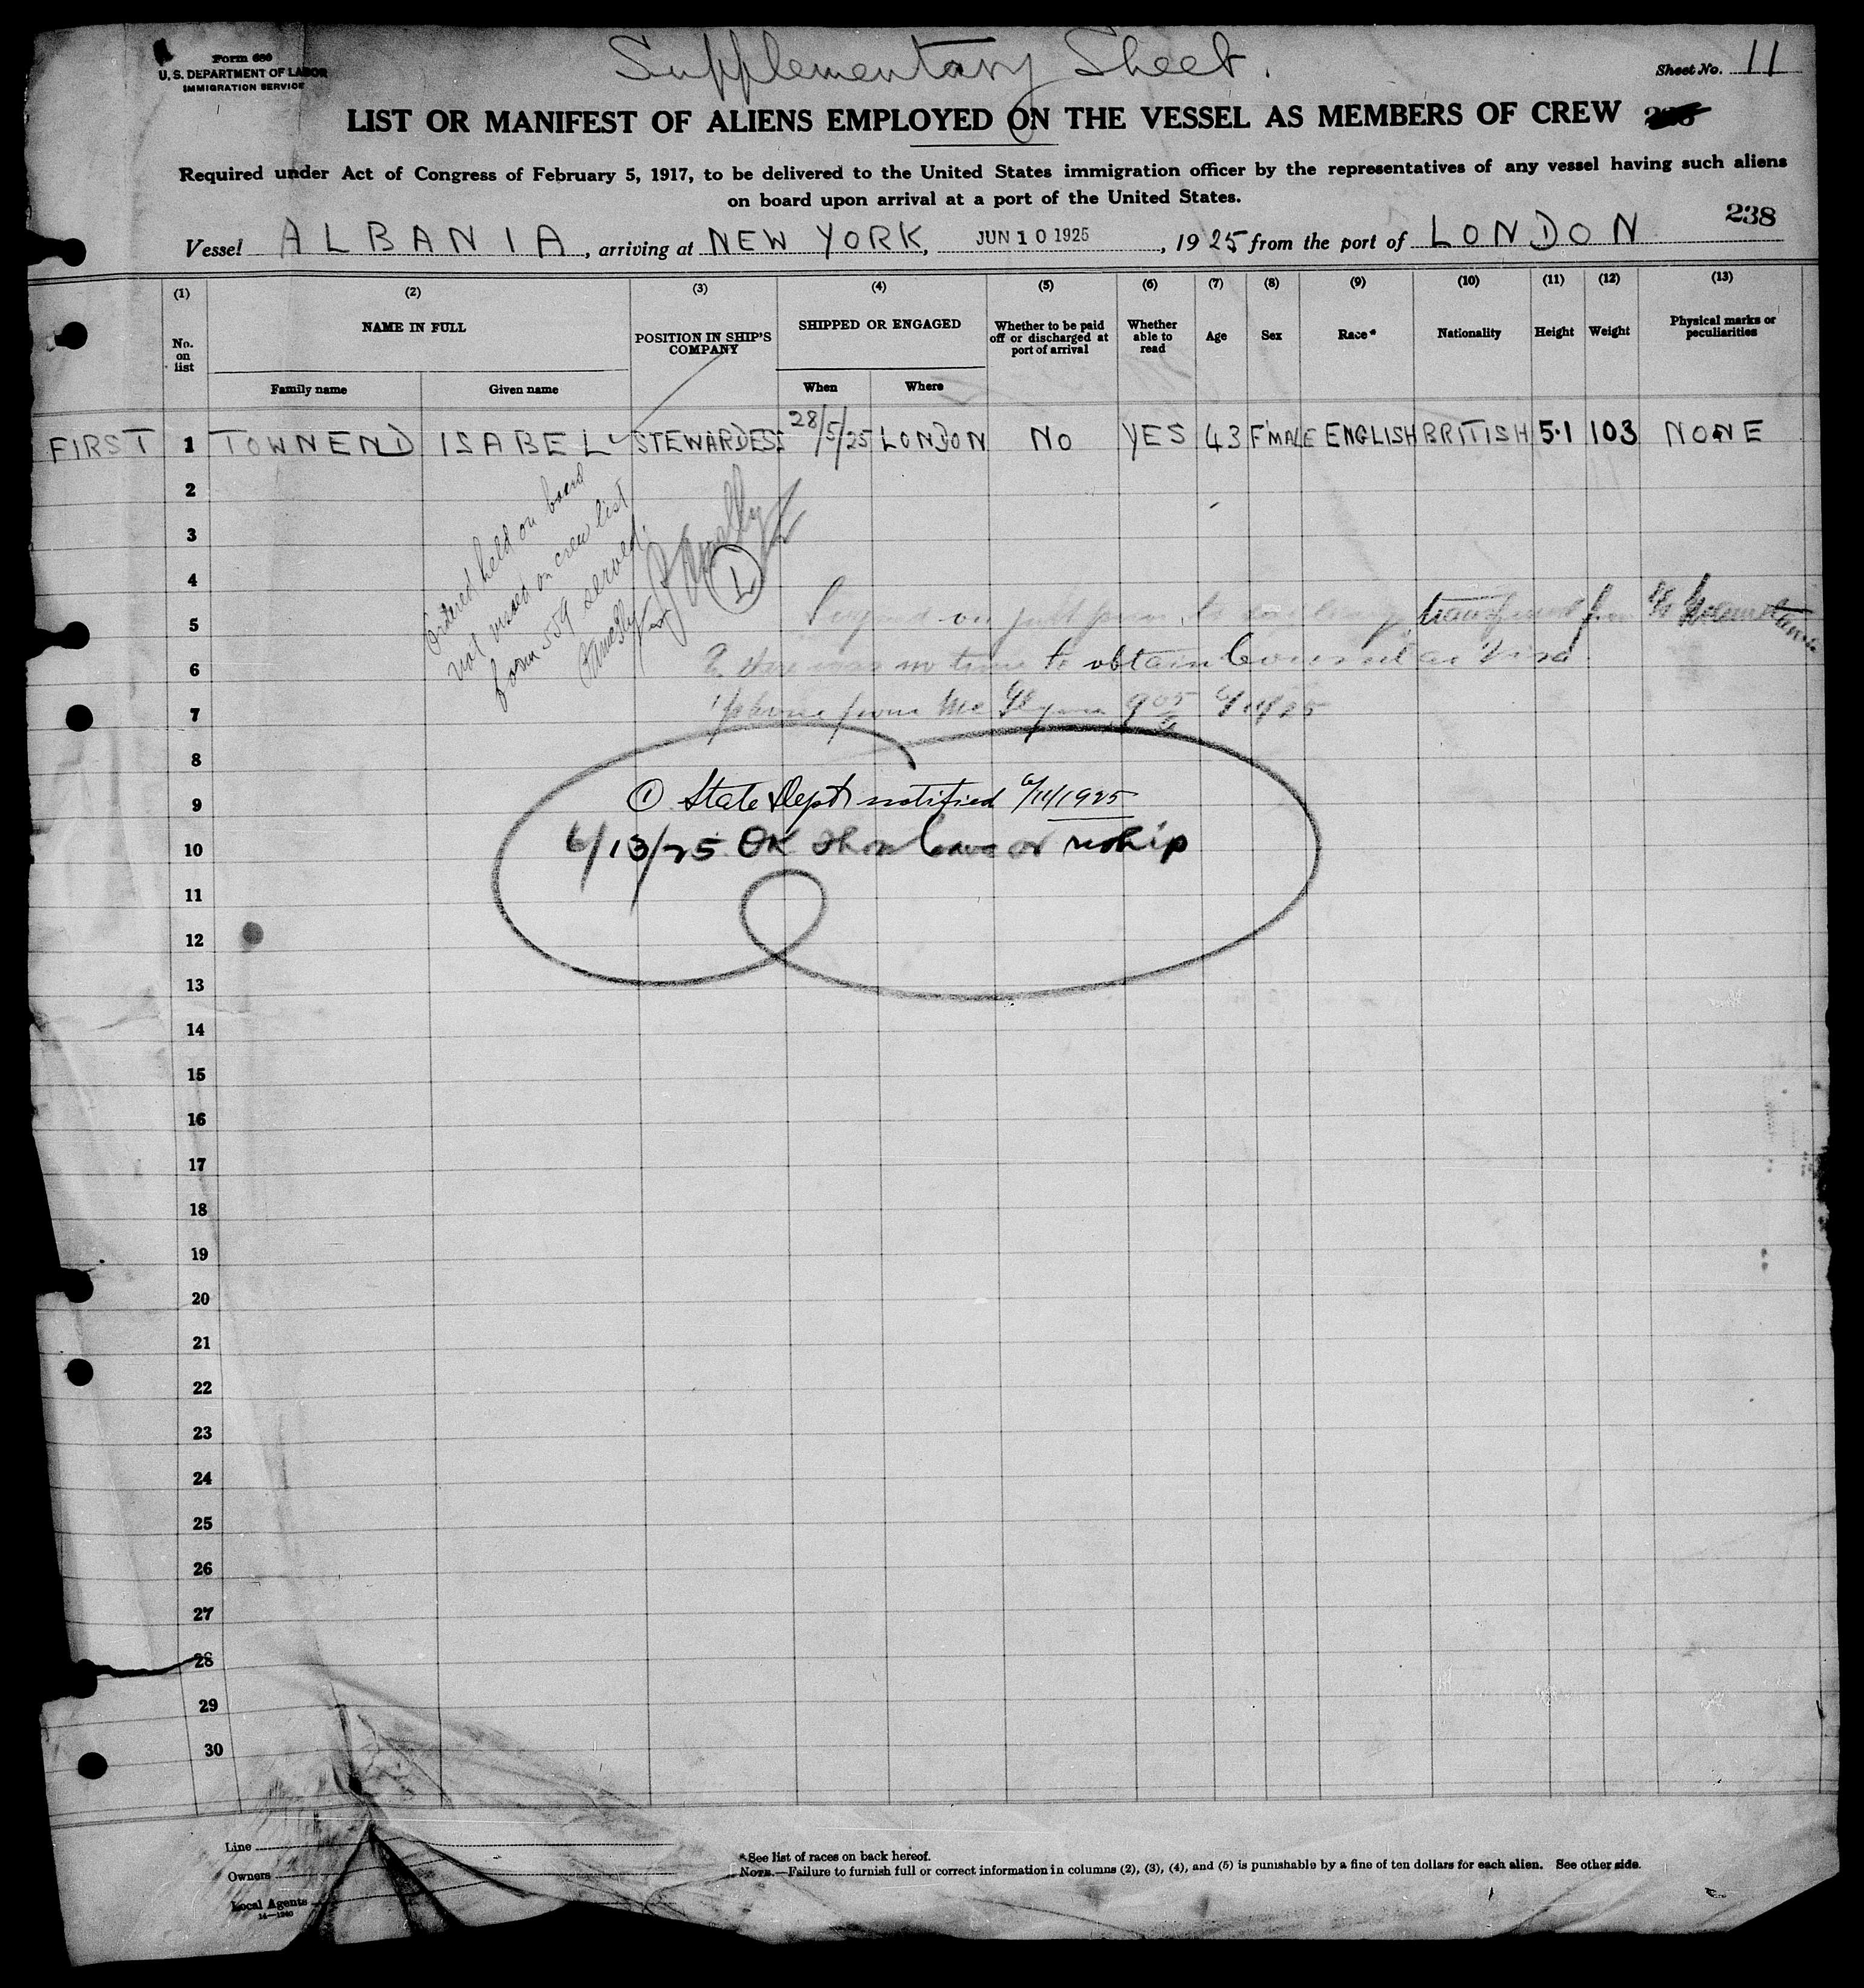 Form 680
U. S. DEPARTMENT OF LABOR
IMMIGRATION SERVICE
Supplementary Sheet.
Sheet No. 11
LIST OR MANIFEST OF ALIENS EMPLOYED ON THE VESSEL AS MEMBERS OF CREW
Required under Act of Congress of February 5, 1917, to be delivered to the United States immigration officer by the representatives of any vessel having such aliens
on board upon arrival at a port of the United States.
238
Vessel ALBANIA, arriving at NEW YORK, JUN 10 1925, 1925 from the port of LONDON
(1) (2) (3) (4) (5) (6) (7) (8) (9) (10) (11) (12) (13)
No. on list
NAME IN FULL
Family name
Given name
POSITION IN SHIP'S COMPANY
SHIPPED OR ENGAGED
When
Where
Whether to be paid off or discharged at port of arrival
Whether able to read
Age
Sex
Race*
Nationality
Height
Weight
Physical marks or peculiarities
FIRST 1 TOWNEND ISABEL STEWARDESS 28/5/25 LONDON NO YES 43 FMALE ENGLISH BRITISH 5·1 103 NONE
Ordered held on board
not visaed on crew list
form 559 served.
1
Signed on just prior to sailing, transferred from
& there was no time to obtain Consular Visa
'phone from Mc 9 05 6/11/25
① State Dept notified 6/11/1925
6/13/25 OK shore leave or reship
2
3
4
5
6
7
8
9
10
11
12
13
14
15
16
17
18
19
20
21
22
23
24
25
26
27
28
29
30
Line
Owners
Local Agents
14—1240
*See list of races on back hereof.
NOTE.—Failure to furnish full or correct information in columns (2), (3), (4), and (5) is punishable by a fine of ten dollars for each alien. See other side.